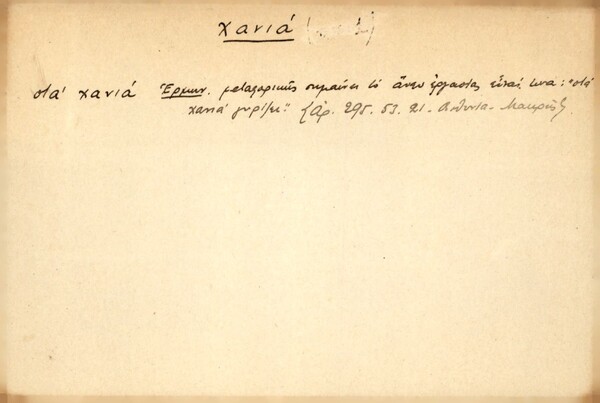 χανιά
στά χανιά Ἑρμην. μεταφορικῶς σημαίνει τό ἄνευ ἐργασίας εἶναί τινα: "στά
χανιά γυρίζει" (Ἀρ. 295. 53. 21.